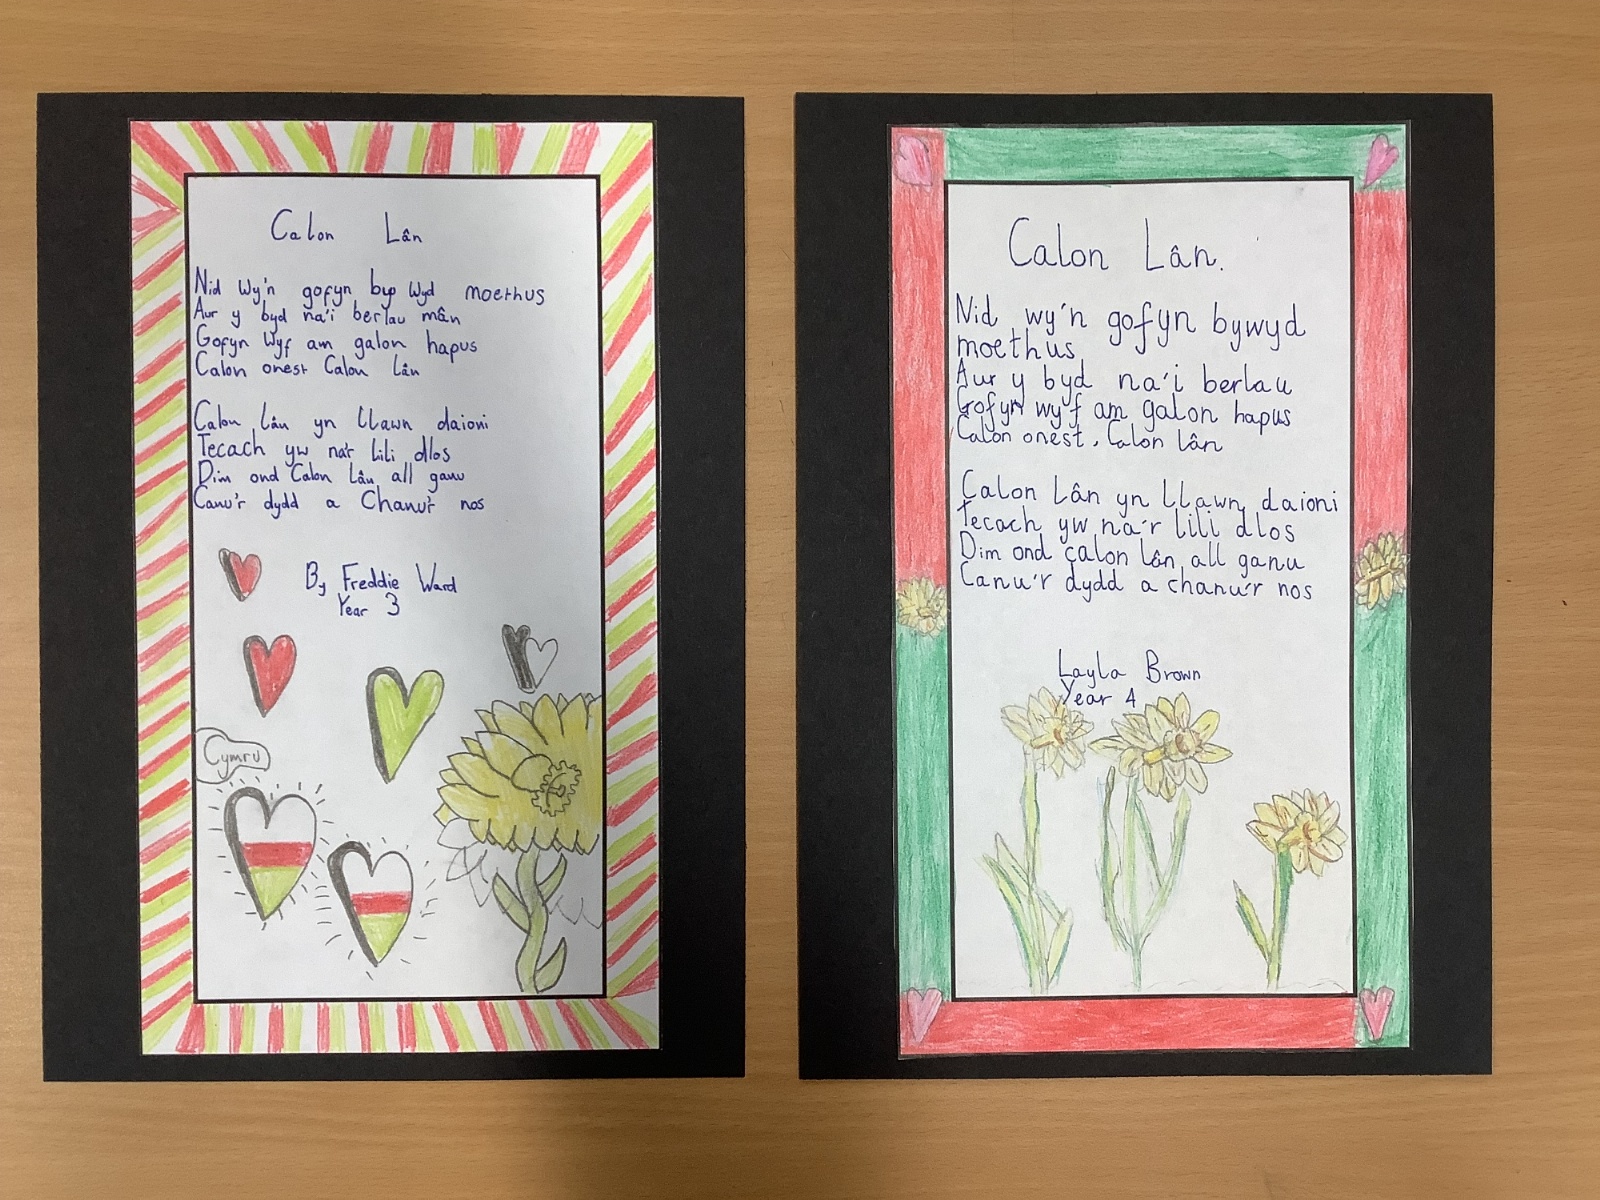 Calon Lân
Nid Wy'n gofyn byw Wyd moethus
Aur y byd na'i berlau mân
Gofyn Wyf am galon hapus
Calon onest Calon Lân
Calon lân yn llawn daioni
Tecach yw na'r lili dlos
Dim ond Calon Lân all ganu
Canu'r dydd a Chanu'r nos
By Freddie Ward
Year 3
Cymru
Calon Lân.
Nid wy'n gofyn bywyd
moethus
Aur y byd na'i berlau
Gofyn wyf am galon hapus
Calon onest, Calon lân
Calon Lân yn llawn daioni
Tecach yw na'r lili dlos
Dim ond calon lân all ganu
Canu'r dydd a chanu'r nos
Layla Brown
Year 4